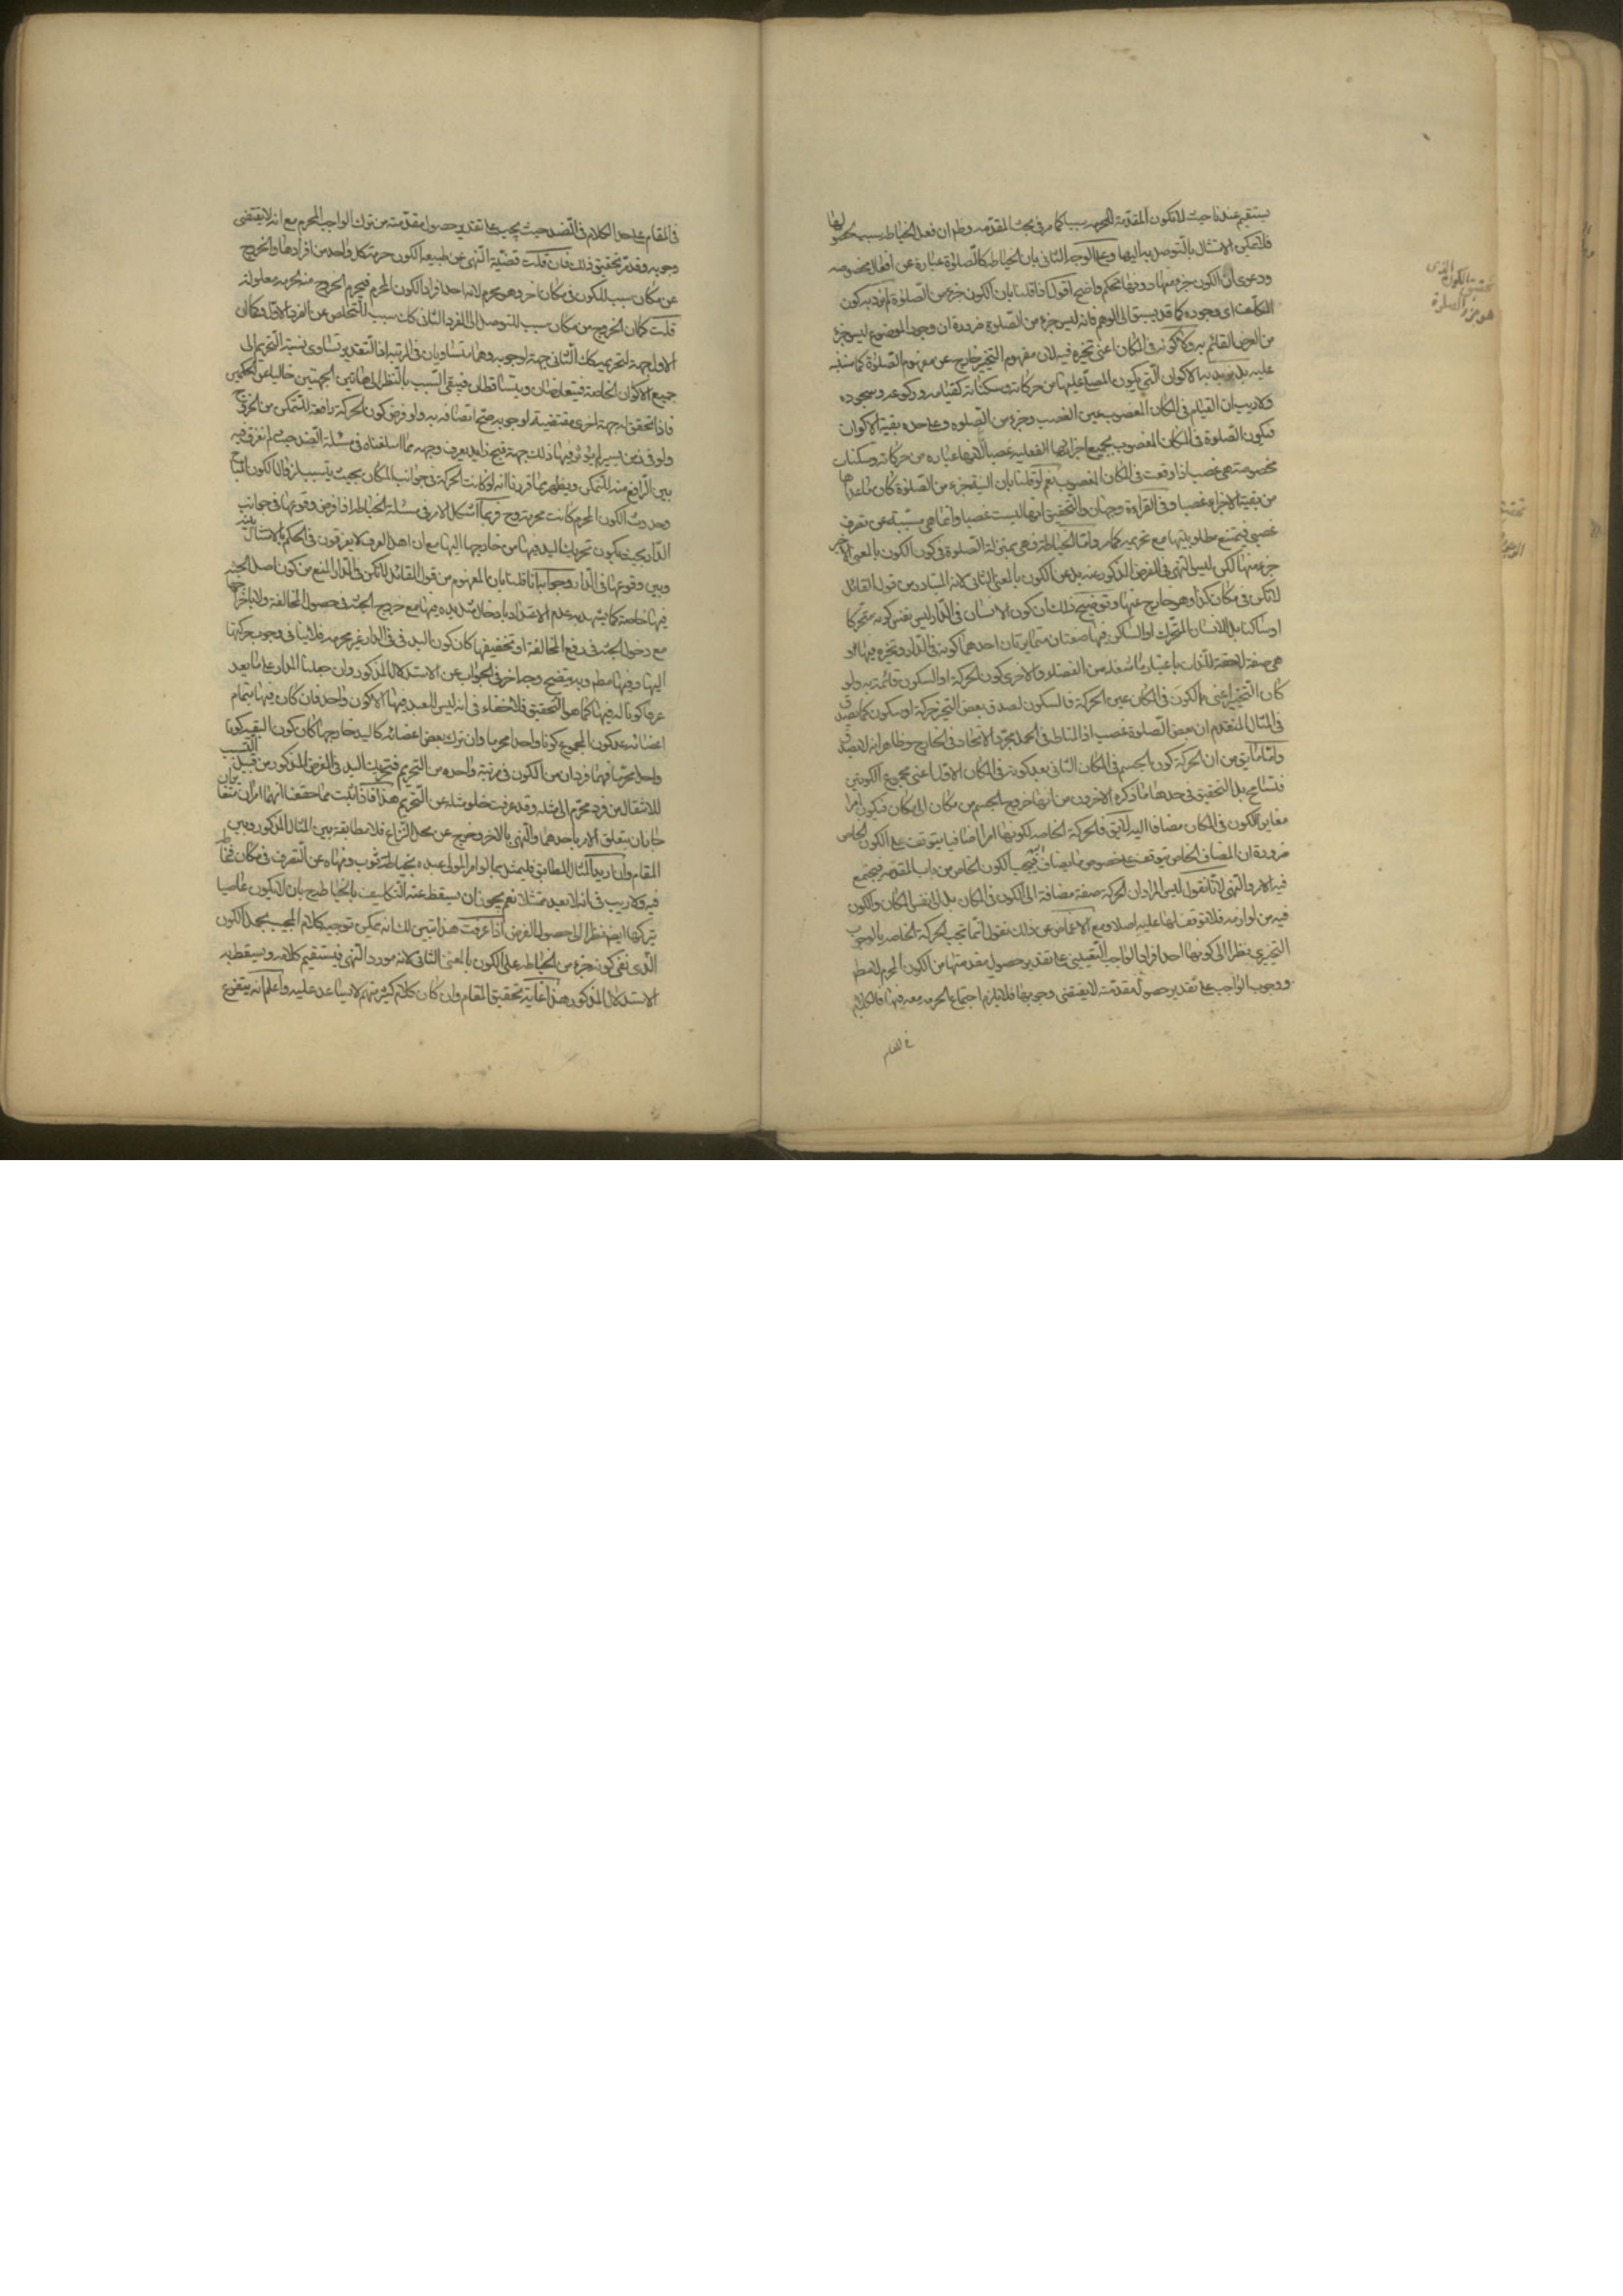 يستقيم عندنا حيث لا تكون المقدمة المحرمة سببا كما مر في بحث المقدمه وظ ان فعل الخياطه سبب لحصولها
فلا يمكن الامتثال بالتوصل به اليها وعلى الوجه الثاني بان الخياطة كالصلوة عبارة عن افعال مخصوصه
ودعوى ان الكون جزء منها دونها تحكم واضح اقول اذا قلنا بان الكون جزء من الصلوة لم نرد به كون
المكلف اي وجوده كما قد يسبق الى الوهم فانه ليس جزء من الصلوة ضرورة ان وجود الموضوع ليس جزء
من العرض القائم به ولا كونه في المكان اعني تحيزه فيه لان مفهوم التحيز خارج عن مفهوم الصلوة كما سننبه
عليه بل نريد به الاكوان التي يكون المصلي عليها من حركاته وسكناته كقيامه وركوعه وسجوده
ولا ريب ان القيام في المكان المغصوب عين الغصب وجزء من الصلوه وعلى حده بقية الاكوان
فتكون الصلوة في المكان المغصوب بجميع اجزائها الفعليه غصبا لانها عباره من حركات وسكنات
مخصوصة هي غصب اذا وقعت في المكان المغصوب نعم لو قلنا بان النية جزء من الصلوة كان ما عداها
من بقية الاجزاء غصبا وفي القراءة وجهان والتحقيق انها ليست غصبا وانما هي مسببة عن تصرف
غصبي فيمتنع مطلوبيتها مع تحريمه كما مر واما الخياطة فهي بمنزلة الصلوة في كون الكون بالمعنى الاخير
جزء منها لكن ليس النهي في الفرض المذكور عنه بل عن الكون بالمعنى الثاني لانه المتبادر من قول القائل
لا تكن في مكان كذا وهو خارج عنها وتوضيح ذلك ان كون الانسان في الدار ليس نفس كونه متحركا
او ساكنا بل للانسان المتحرك او الساكن فيها صفتان متمايزتان احدهما كونه في الدار وتحيزه فيها و
هي صفة لاحقة للذات باعتبار ما شغله من الفضاء والاخرى كون الحركة او السكون قائمة به ولو
كان التحيز اعني الكون في المكان عين الحركة والسكون لصدق بعض التحيز حركة او سكون كما يصدق
في المثال المتقدم ان بعض الصلوة غصب اذ المناط في الحمل مجرد الاتحاد في الخارج وظاهر انه لا يصدق
واما ما يق من ان الحركة كون الجسم في المكان الثاني بعد كونه في المكان الاول اعني مجموع الكونين
فتسامح بل التحقيق في حدها ما ذكره الاخرون من انها خروج الجسم من مكان الى مكان فيكون امرا
مغايرا للكون في المكان مضافا اليه لا يق فالحركة الخاصه لكونها امرا اضافيا يتوقف على الكون الخاص
ضرورة ان المضاف الخاص يتوقف على خصوص ما يضاف اليه فيجب الكون الخاص من باب المقدمه فيجتمع
فيه الامر والنهي لانا نقول ليس المراد ان الحركة صفة مضافة الى الكون في المكان بل الى نفس المكان والكون
فيه من لوازمه فلا توقف لها عليه اصلا ومع الاغماض عن ذلك نقول انما تجب الحركة الخاصه بالوجوب
التخييري نظرا الى كونها احد افراد الواجب التعييني على تقدير حصول مقدمتها من الكون المحرم لا مطم
ووجوب الواجب على تقدير حصول مقدمته لا يقتضي وجوبها فلا يلزم اجتماع الحرمه معه فيها فالكلام
في المقام
تحقيق الكون الذي
هو جزء الصلوة
في المقام على حد الكلام في الضد حيث يجب على تقدير حصول مقدمته من ترك الواجب المحرم مع انه لا يقتضي
وجوبه وقد مر تحقيق ذلك فان قلت قضية النهي عن طبيعه الكون حرمة كل واحد من افرادها والخروج
عن مكان سبب للكون في مكان اخر وهو محرم لانه احد افراد الكون المحرم فيحرم الخروج منه لحرمه معلوله
قلت كما ان الخروج من مكان سبب للتوصل الى الفرد الثاني كك سبب للتخلص عن الفرد الاول فكما ان
الاول جهة لتحريمه كك الثاني جهة لوجوبه وهما متساويان في المرتبه اذ التقدير تساوي نسبة التحريم الى
جميع الاكوان الخاصة فيتعارضان ويتساقطان فيبقى السبب بالنظر الى هاتين الجهتين خاليا عن الحكمين
فاذا تحقق له جهة اخرى مقتضية لوجوبه صح اتصافه به ولو فرض كون الحركة رافعة للتمكن من الخروج
ولو في زمن يسير لم يؤثر فيها ذلك جهة قبح زايد يعرف وجهه مما اسلفناه في مسئلة الضد حيث لم نفرق فيه
بين الرافع منه للتمكن ويظهر مما قررنا انه لو كانت الحركة في جوانب المكان بحيث يتسبب لزوال الكون المباح
وحدوث الكون المحرم كانت محرمة وح فربما اشكل الامر في مسئلة الخياطه اذا فرض وقوعها في جوانب
الدار بحيث يكون تحريك اليد فيها من خارجها اليها مع ان اهل العرف لا يفرقون في الحكم بالامتثال بينه
وبين وقوعها في الدار وجوابه انا قلنا بان المفهوم من قول القائل لا تكن في الدار المنع من كون اصل الجثه
فيها خاصة كما يشهد به عدم الاعتداد بادخال مثل يده فيها مع خروج الجثه في حصول المخالفة ولا باخراجها
مع دخول الجثه في رفع المخالفة او تخفيفها كان كون اليد في الدار غير محرمه فلا ينافي وجوب حركتها
اليها وفيها مطم وبه يتضح وجه اخر في الجواب عن الاستدلال المذكور وان جعلنا المدار على ما يعد
عرفا كونا له فيها كما هو التحقيق فلا خفاء في انه ليس للعبد فيها الا كون واحد فان كان فيها بتمام
اعضائه عد كون المجموع كونا واحدا محرما وان ترك بعض اعضائه كاليد خارجها كان كون البقيه كونا
واحدا محرما فهما فردان من الكون في مرتبة واحده من التحريم فتحريك اليد في الفرض المذكور من قبيل التسبب
للانتقال من فرد محرم الى مثله وقد عرفت خلو مثله عن التحريم هذا فاذا ثبت بما حققنا انهما امران متغايران
جاز ان يتعلق الامر باحدهما والنهي بالاخر وخرج عن محل النزاع فلا مطابقة بين المثال المذكور وبين
المقام وان اريد المثال المطابق فليمثل بما لو امر المولى عبده بخياطة ثوب ونهاه عن التصرف في مكان فخاطه
فيه ولا ريب في انه لا يعد ممتثلا نعم يجوز ان يسقط عنه التكليف بالخياطه ح بان لا يكون عاصيا
بتركها ايضا نظرا الى حصول الغرض اذا عرفت هذا تبين لك انه يمكن توجيه كلام المجيب بحمل الكون
الذي نفى كونه جزء من الخياطه على الكون بالمعنى الثاني لانه مورد النهي فيستقيم كلامه ويسقط به
الاستدلال المذكور هذا غاية تحقيق المقام وان كان كلام كثير منهم لا يساعد عليه واعلم انه يتفرع